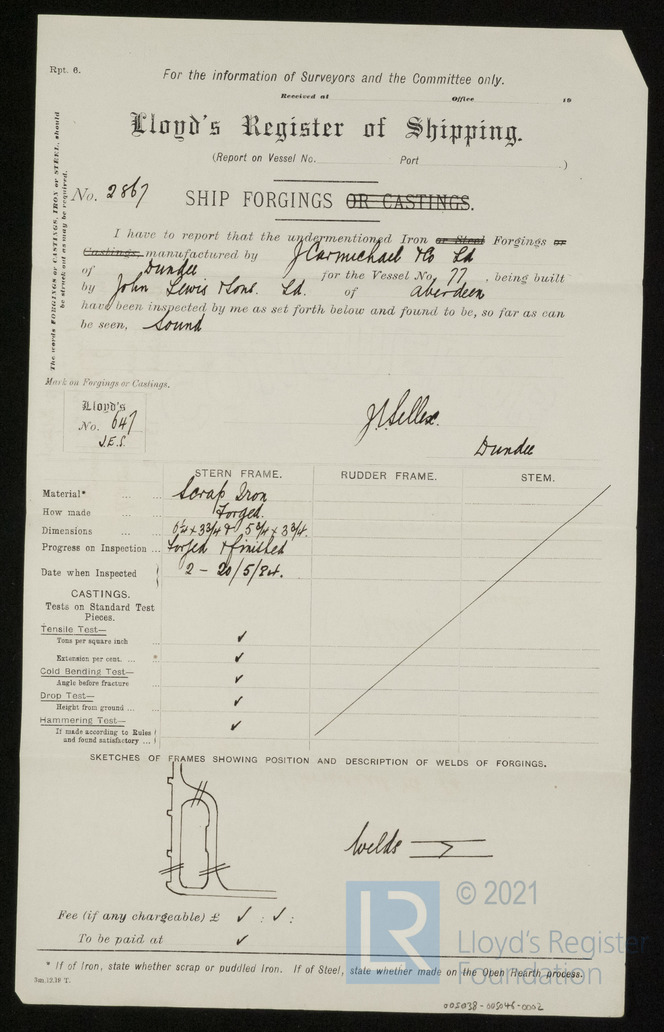 Rpt. 6.
For the information of Surveyors and the Committee only.
Received at Office 19
Lloyd's Register of Shipping.
(Report on Vessel No. Port )
The words FORGINGS or CASTINGS, IRON or STEEL, should
be struck out as may be required.
No. 2867
SHIP FORGINGS OR CASTINGS.
I have to report that the undermentioned Iron or Steel Forgings or
Castings, manufactured by J Carmichael & Co Ld
of Dundee for the Vessel No. 77, being built
by John Lewis & Sons. Ld. of Aberdeen
have been inspected by me as set forth below and found to be, so far as can
be seen, Sound
Mark on Forgings or Castings.
Lloyd's
No. 647
J.E.S.
Dundee
STERN FRAME. RUDDER FRAME. STEM.
Material* ... ... Scrap Iron
How made ... Forged.
Dimensions ... ... 6½ x 3¾ & 5¾ x 3¾.
Progress on Inspection ... Forged & finished
Date when Inspected { 2 - 20/5/24.
CASTINGS.
Tests on Standard Test
Pieces.
Tensile Test—
Tons per square inch ... ✓
Extension per cent. ... " ✓
Cold Bending Test—
Angle before fracture ✓
Drop Test—
Height from ground ... ... ✓
Hammering Test—
If made according to Rules } ✓
and found satisfactory ... }
SKETCHES OF FRAMES SHOWING POSITION AND DESCRIPTION OF WELDS OF FORGINGS.
Welds
Fee (if any chargeable) £ ✓ : ✓ :
To be paid at ✓
* If of Iron, state whether scrap or puddled Iron. If of Steel, state whether made on the Open Hearth process.
LR
© 2021
Lloyd's Register
Foundation
005038-005046-0002